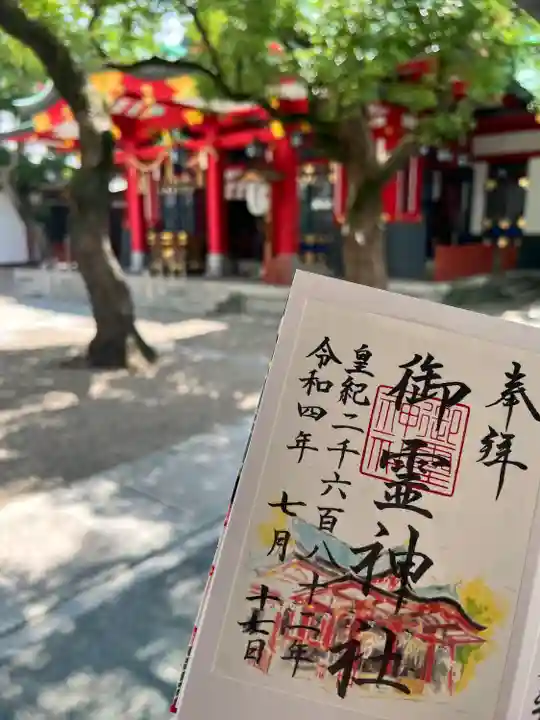 奉拝
御霊神社
皇紀二千六百八十二年
令和四年 七月 十七日